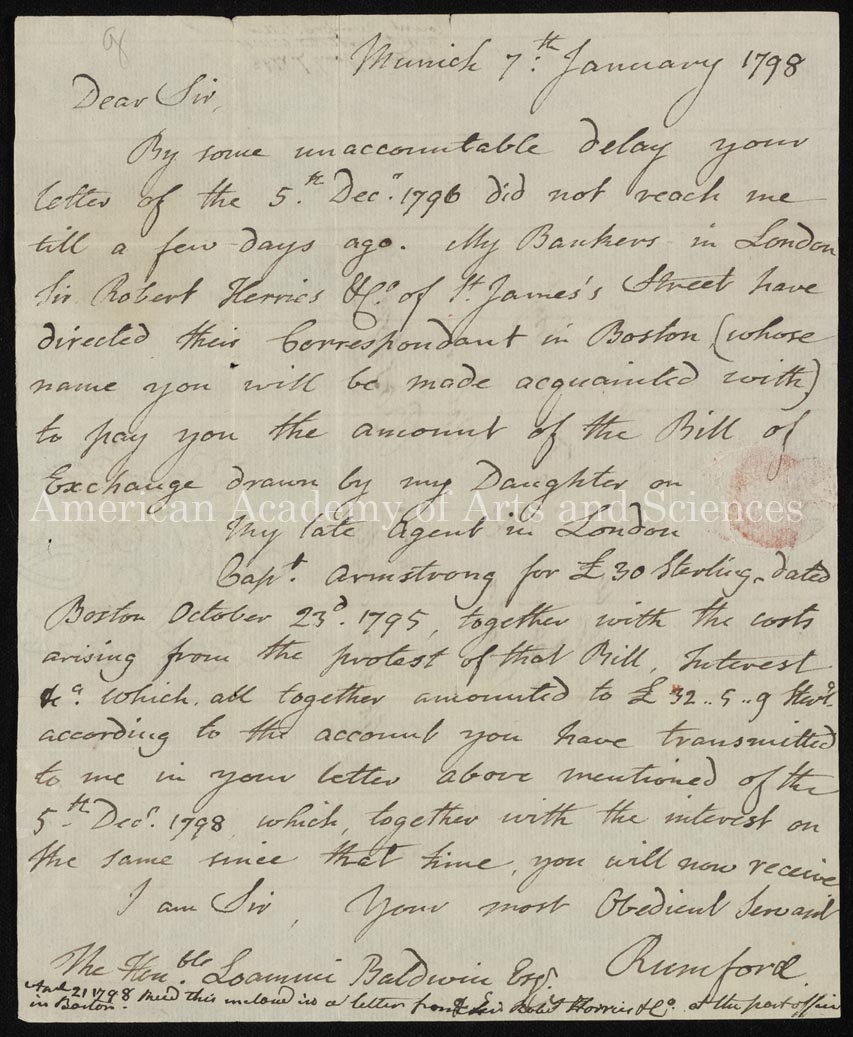 Munich 7.th January 1798
Dear Sir,
By some unaccountable delay your
letter of the 5.th Dec.r 1796 did not reach me
till a few days ago. My Bankers in London
Sir Robert Herries &C.o of St. James's Street have
directed their Correspondant in Boston (whose
name you will be made acquainted with)
to pay you the amount of the Bill of
Exchange drawn by my Daughter on
American Academy of Arts and Sciences
My late Agent in London
Capt. Armstrong for £30 Sterling, dated
Boston October 23d. 1795, together with the costs
arising from the protest of that Bill, Interest
&c. which all together amounted to £32..5..9 Sterg.
according to the account you have transmitted
to me in your letter above mentioned of the
5.th Dec.r 1798 which, together with the interest on
the same since that time, you will now receive
I am Sir, Your most Obedient Servant
Rumford.
The Hon.ble Loammi Baldwin Esq.r
21 1798 this inclosed in a letter from Sir Rob.t Herries &C.o at the post office
in Boston.